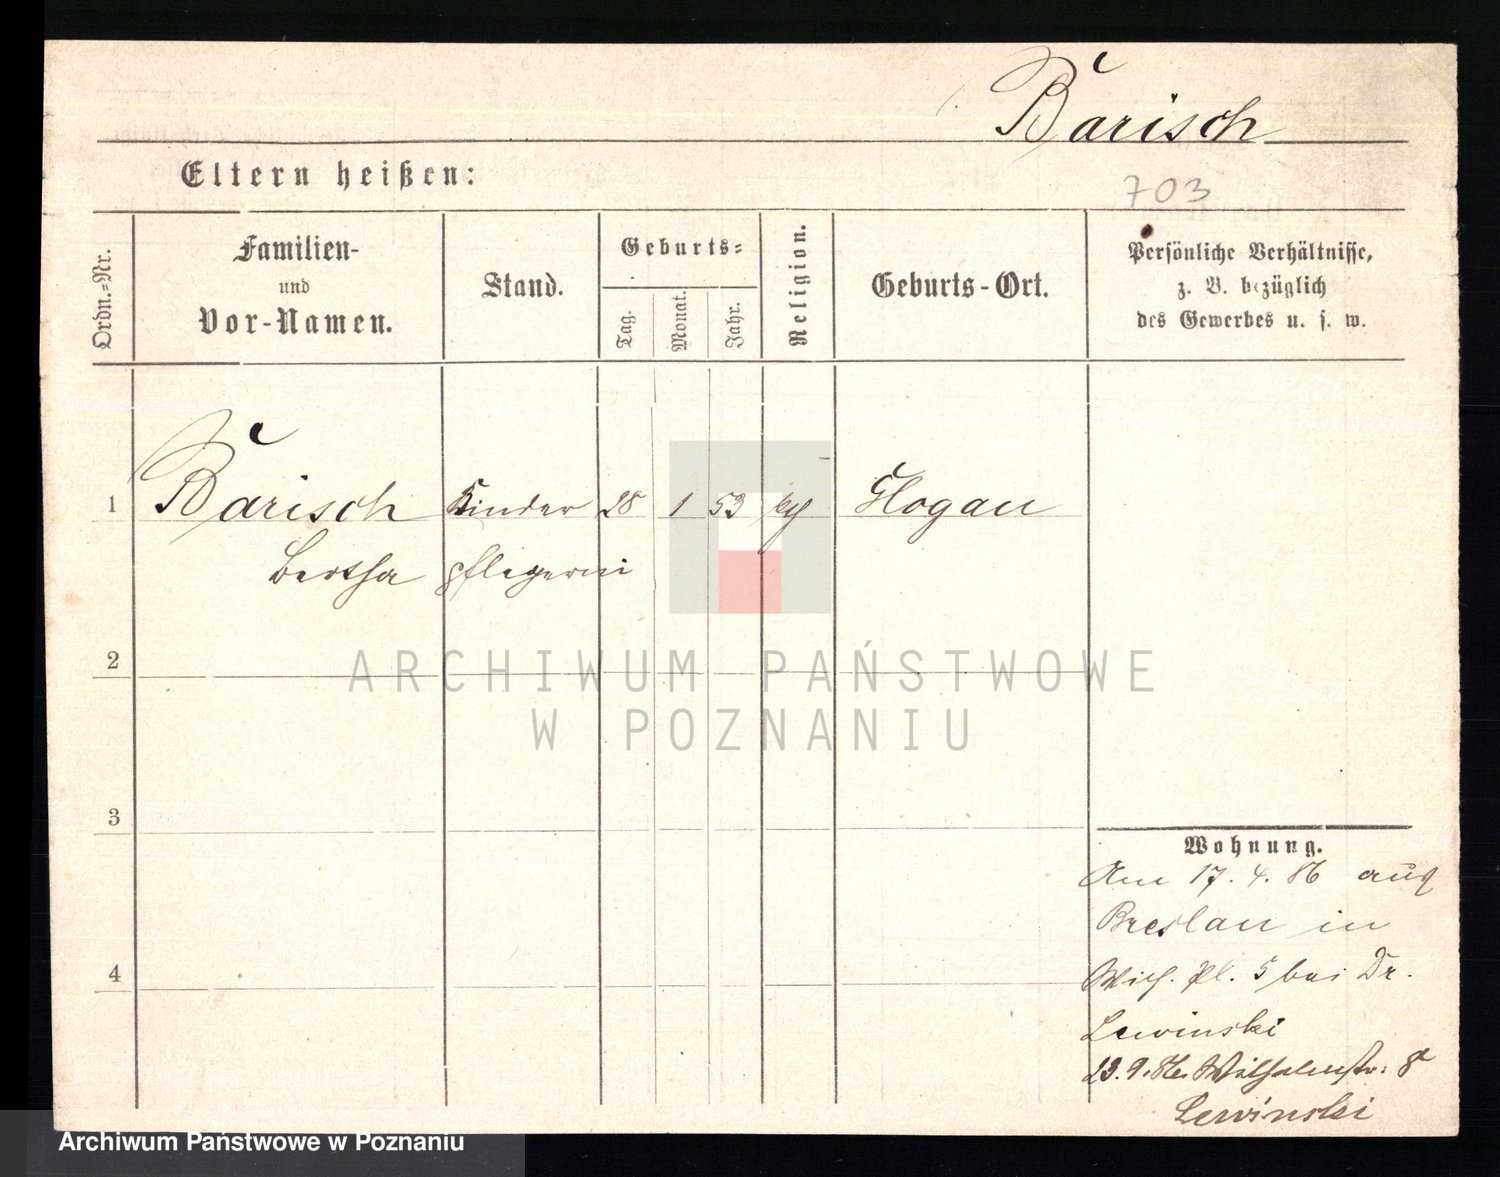 Barisch
Eltern heißen:
703
Ordn.-Nr.
Familien-
und
Vor-Namen.
Stand.
Geburts-
Tag.
Monat.
Jahr.
Religion.
Geburts-Ort.
Persönliche Verhältnisse,
z. B. bezüglich
des Gewerbes u. s. w.
1 Barisch Kinder 28 1 53 Glogau
Bertha pflegerin
2
3
4
Wohnung.
Am 17. 4. 86 aus
Breslau in
Wilh. Pl. 5 bei Dr.
Lewinski
23. 9. 86. Wilhelmstr. 8
Lewinski
ARCHIWUM PAŃSTWOWE
W POZNANIU
Archiwum Państwowe w Poznaniu